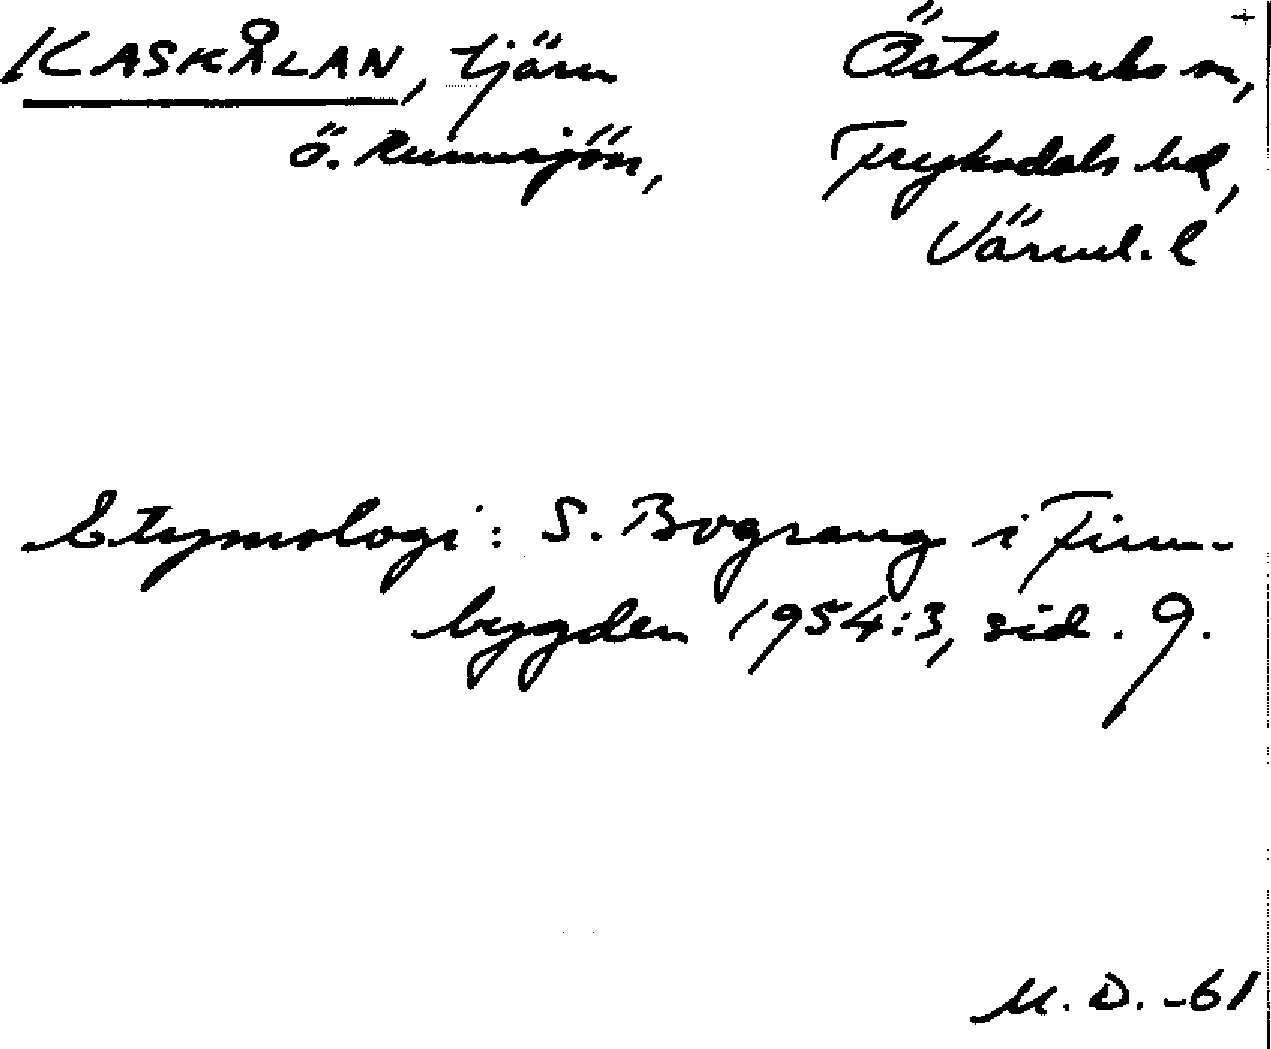 KASKÅLAN, tjärn Östmarks sn,
ö. Runnsjön, Fryksdals hd,
Värml. l
Etymologi: S. Bograng i Finn-
bygden 1954:3, sid. 9.
M. D. -61